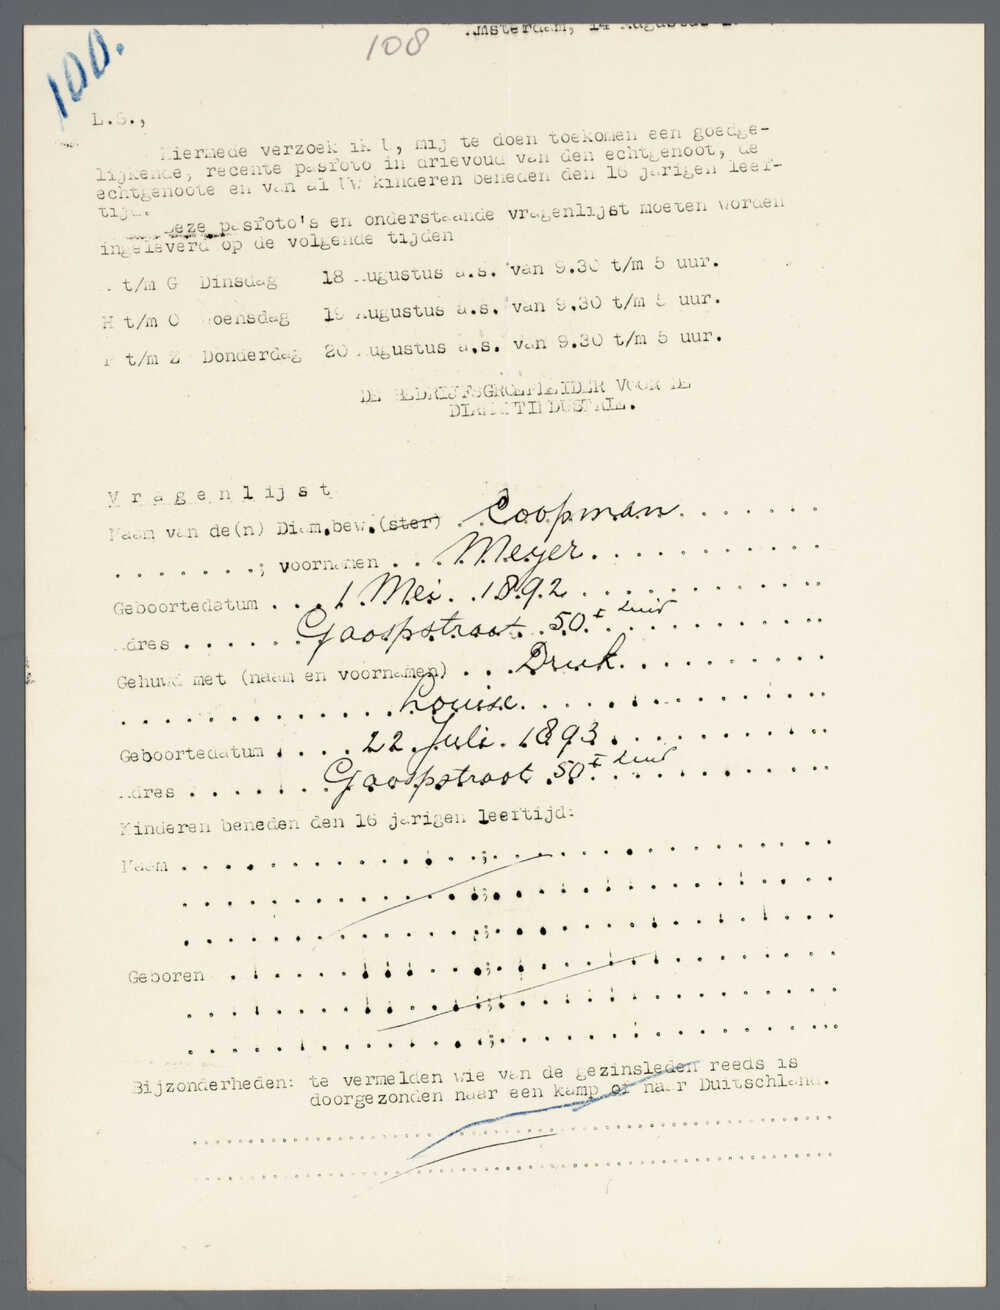 100.
108
Amsterdam, 14 Augustus
L.S.,
Hiermede verzoek ik U, mij te doen toekomen een goedge-
lijkende, recente pasfoto in drievoud van den echtgenoot, de
echtgenoote en van al Uw kinderen beneden den 16 jarigen leef-
tijd.
Deze pasfoto's en onderstaande vragenlijst moeten worden
ingeleverd op de volgende tijden
t/m G Dinsdag 18 Augustus a.s. van 9.30 t/m 5 uur.
H t/m O Woensdag 19 Augustus a.s. van 9.30 t/m 5 uur.
P t/m Z Donderdag 20 Augustus a.s. van 9.30 t/m 5 uur.
DE BEDRIJFSGROEPLEIDER VOOR DE
DIAMANTINDUSTRIE.
Vragenlijst
Naam van de(n) Diam.bew.(ster) . Coopman . . . . . . .
. . . . . . . .; voornamen . . . Meyer . . . . . . . . . .
Geboortedatum . . . 1 Mei. 1892 . . . . . . . . . .
Adres . . . . . . Gaaspstraat 50 I huis . . . . . . . . .
Gehuwd met (naam en voornamen) . . . Druk . . . . . . . . .
. . . . . . . . . . . . . Louise . . . . . . . . . . . . . .
Geboortedatum . . . . 22 Juli. 1893. . . . . . . . . .
Adres . . . . . . . Gaaspstraat 50 I huis . . . . . . . . .
Kinderen beneden den 16 jarigen leeftijd:
Naam . . . . . . . . . . . . . . ; . . . . . . . . . . . . . . .
. . . . . . . . . . . . . . ; . . . . . . . . . . . . . . .
. . . . . . . . . . . . . . ; . . . . . . . . . . . . . . .
Geboren . . . . . . . . . . . . ; . . . . . . . . . . . . . . .
. . . . . . . . . . . . . . ; . . . . . . . . . . . . . . .
. . . . . . . . . . . . . . ; . . . . . . . . . . . . . . .
Bijzonderheden: te vermelden wie van de gezinsleden reeds is
doorgezonden naar een kamp of naar Duitschland.